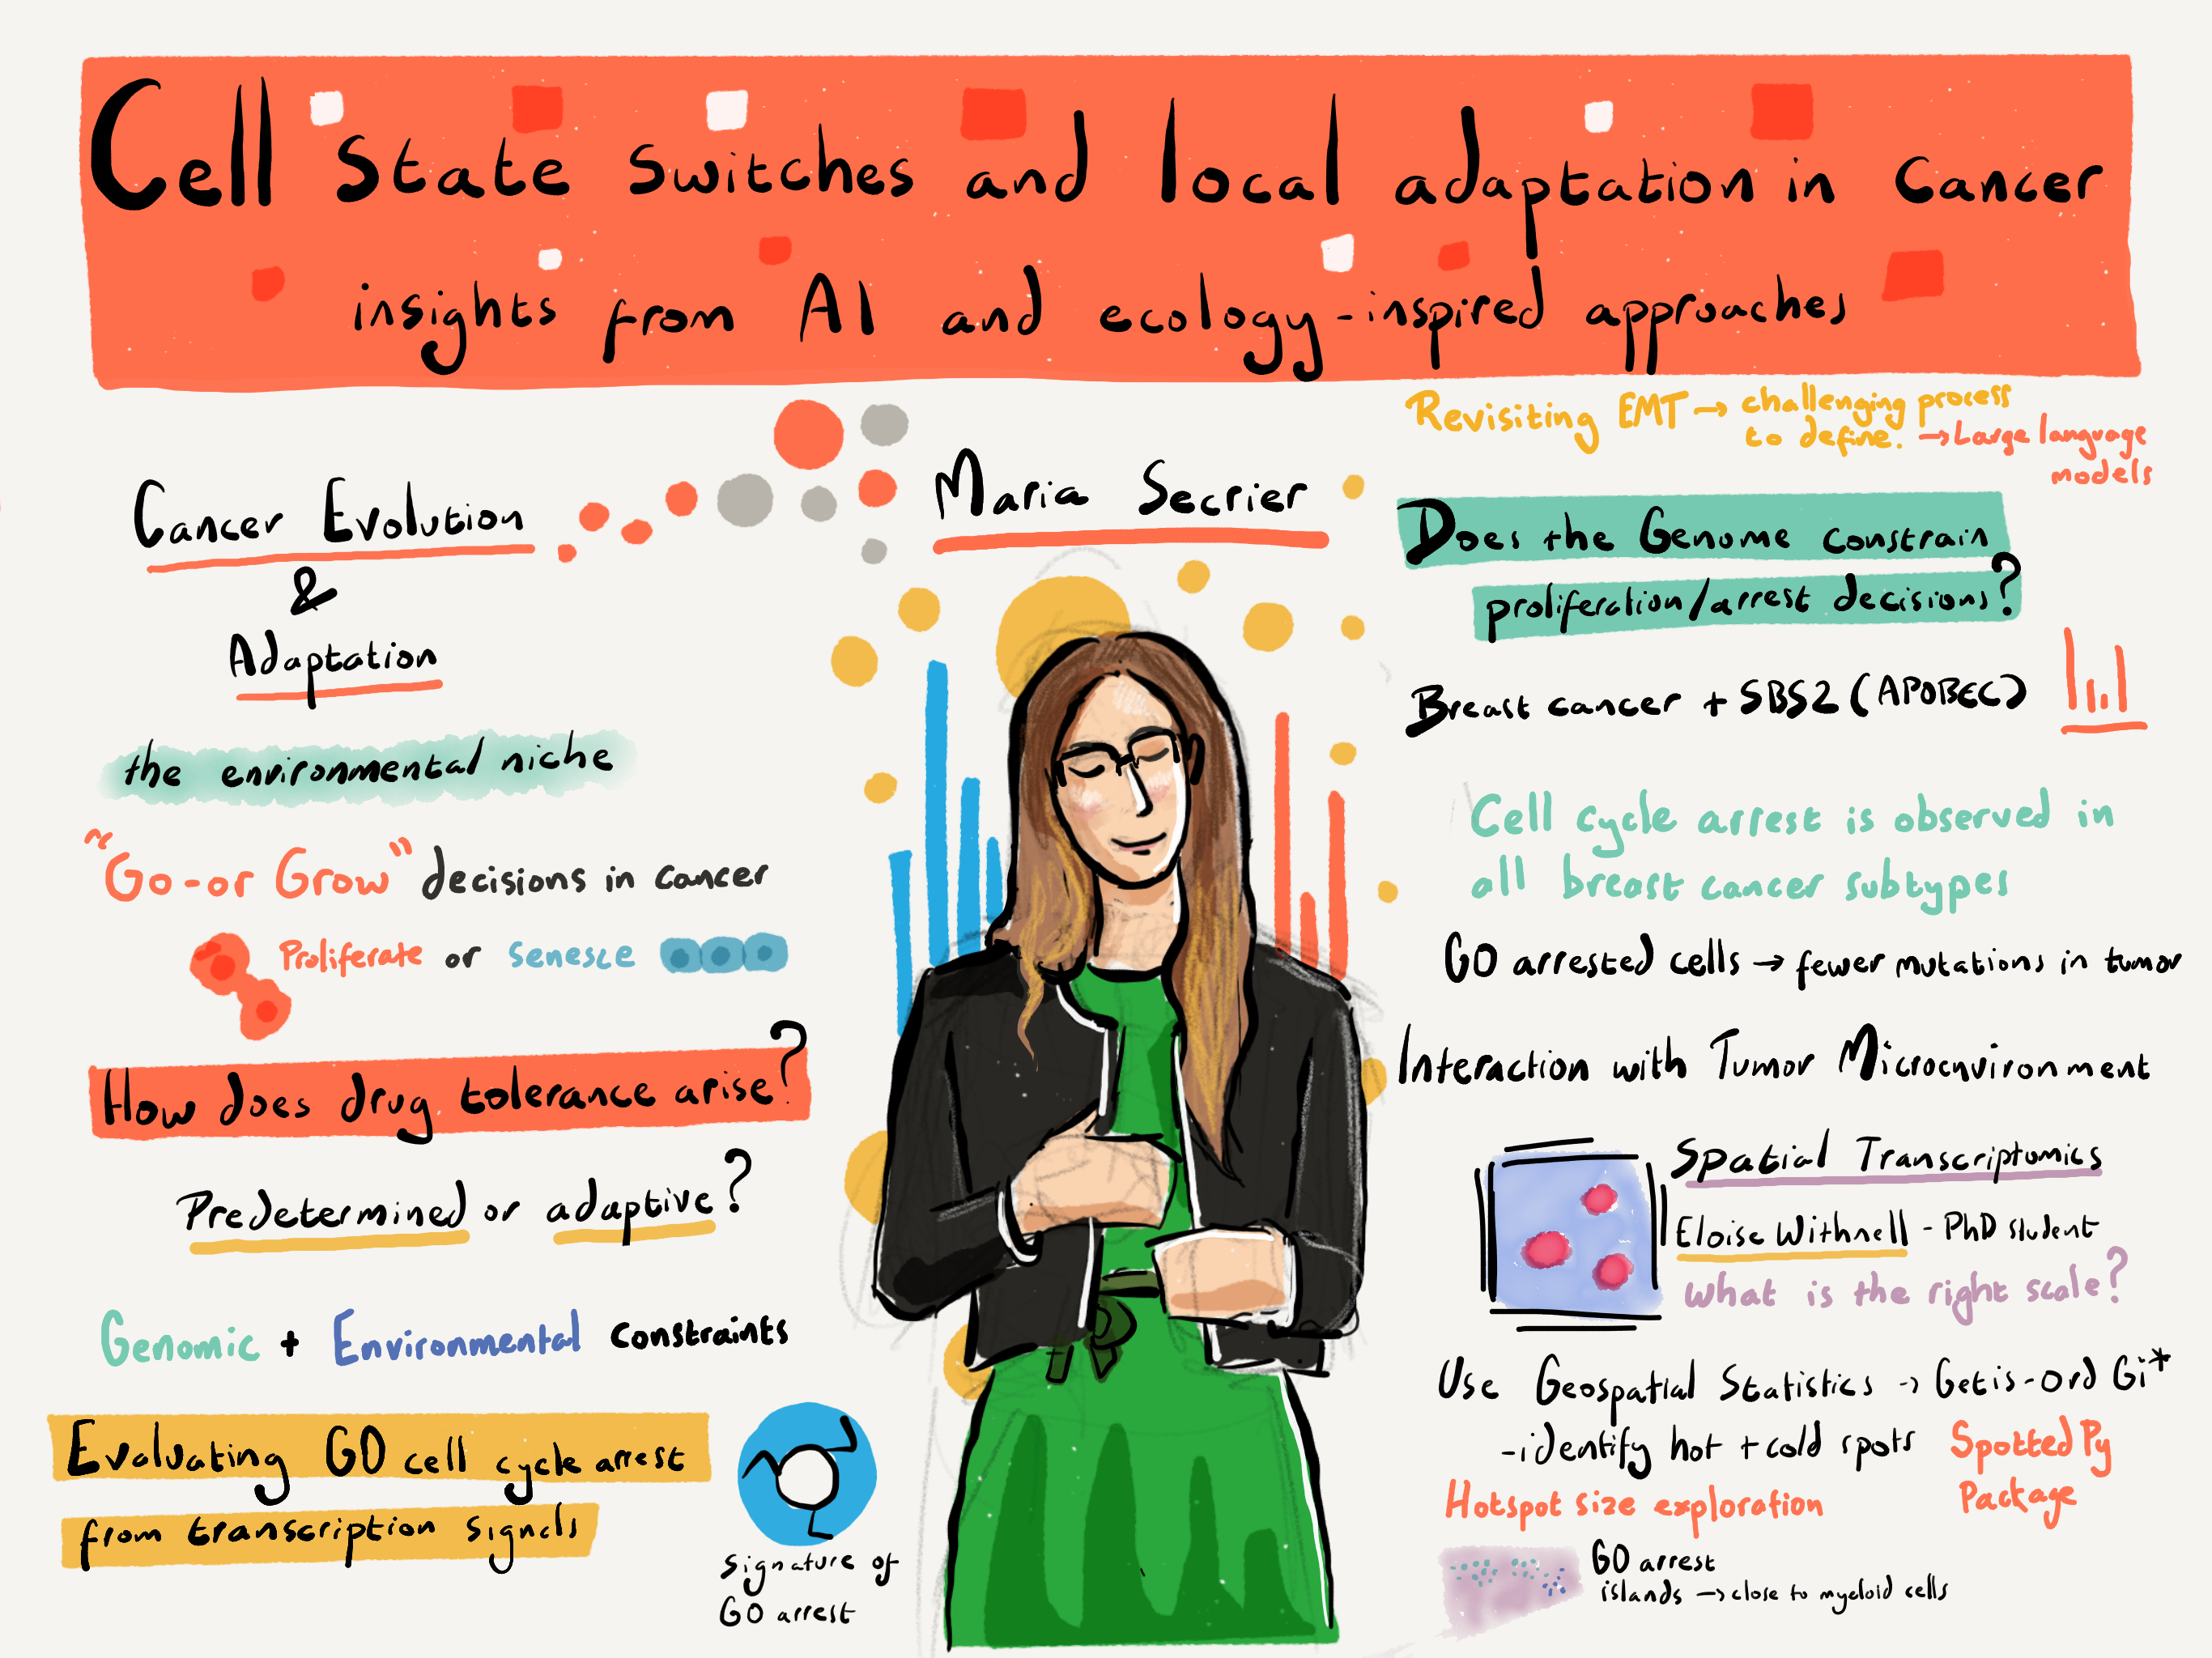 Cell State Switches and local adaptation in Cancer
insights from AI and ecology-inspired approaches
Cancer Evolution
&
Adaptation
the environmental niche
"Go-or Grow" decisions in cancer
Proliferate or senesce
How does drug tolerance arise?
Predetermined or adaptive?
Genomic + Environmental constraints
Evaluating G0 cell cycle arrest
from transcription signals
signature of
G0 arrest
Maria Secrier
Revisiting EMT → challenging process
to define. → Large language
models
Does the Genome constrain
proliferation/arrest decisions?
Breast cancer + SBS2 (APOBEC)
Cell cycle arrest is observed in
all breast cancer subtypes
G0 arrested cells → fewer mutations in tumor
Interaction with Tumor Microenvironment
Spatial Transcriptomics
Eloise Withnell - PhD student
what is the right scale?
Use Geospatial Statistics → Getis-Ord Gi*
-identify hot + cold spots
SpottedPy
Package
Hotspot size exploration
G0 arrest
islands → close to myeloid cells